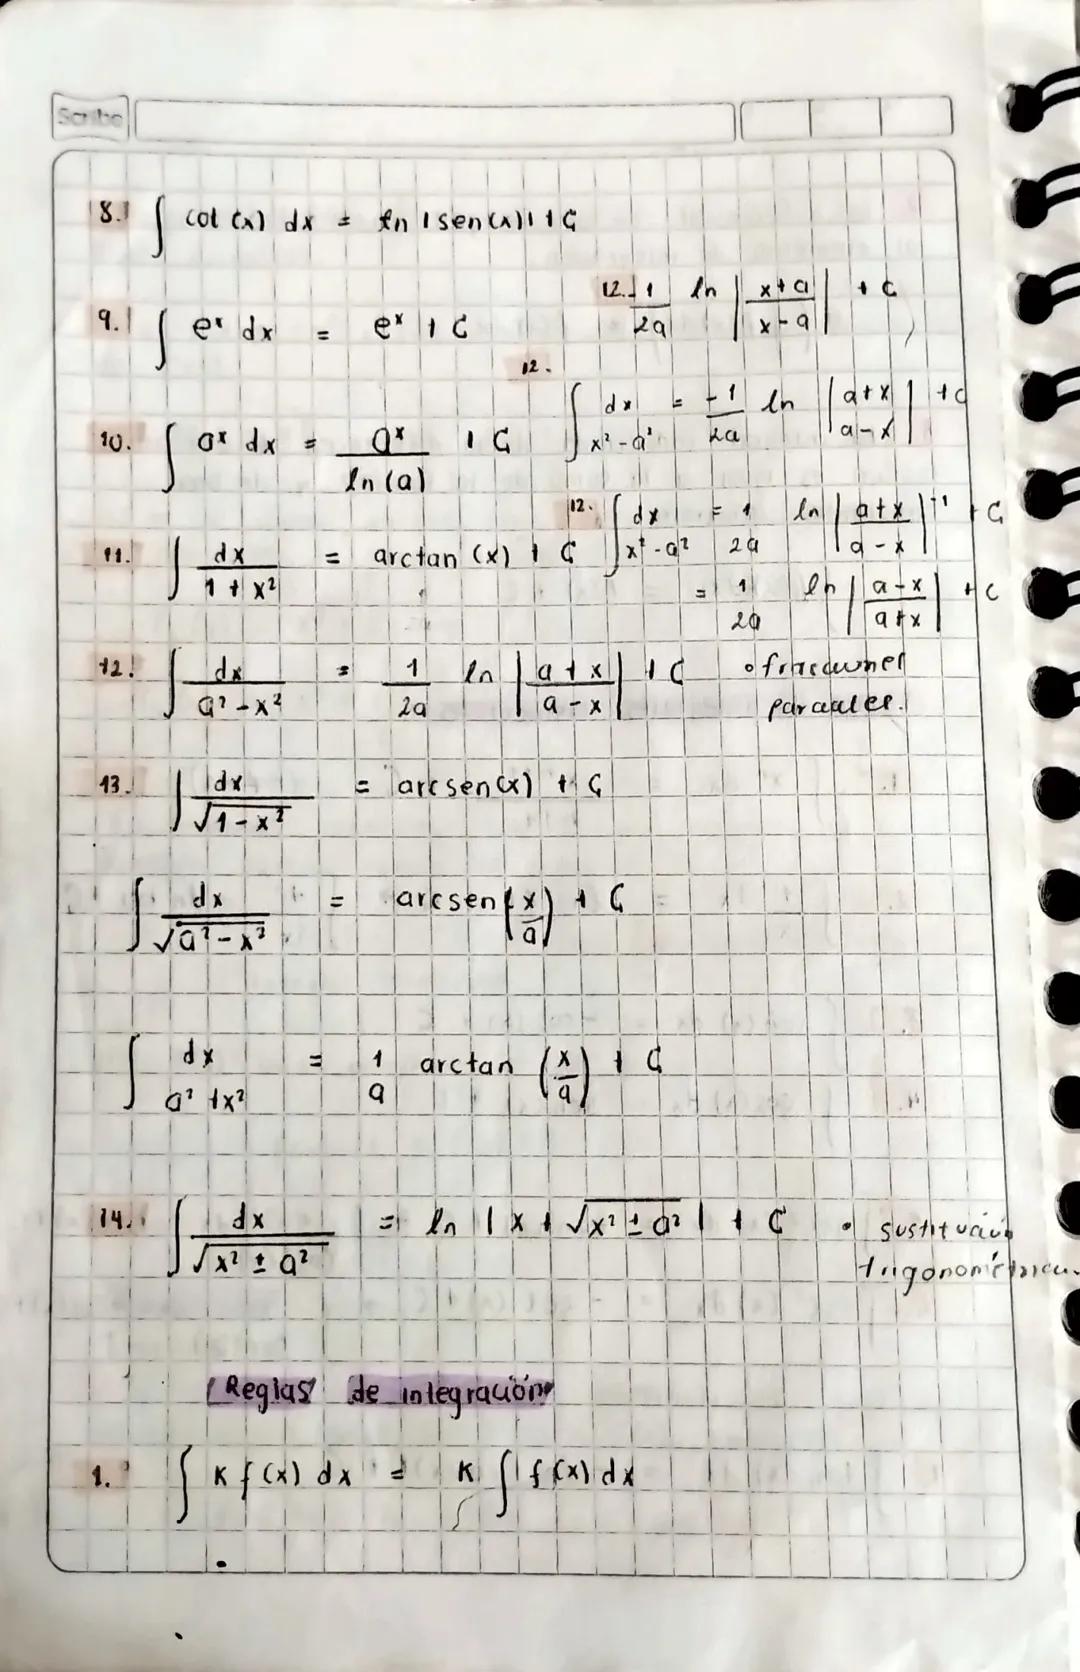 Scribe
8. ∫ cot (x) dx = ln |sen(x)| + C
12. 1/2a ln |x+a / x-a| + C
9. ∫ eˣ dx = eˣ + C
12.
∫ dx / x² - a² = -1/2a ln |a+x / a-x| + C
10. ∫ aˣ dx = aˣ / ln (a) + C
12. ∫ dx / x² - a² = 1/2a ln |a+x / a-x|⁻¹ + C
11. ∫ dx / 1 + x² = arctan (x) + C
= 1/2a ln |a-x / a+x| + C
12. ∫ dx / a² - x² = 1/2a ln |a+x / a-x| + C • fracciones
parciales.
13. ∫ dx / √1-x² = arcsen(x) + C
∫ dx / √a²-x² = arcsen (x/a) + C
∫ dx / a² + x² = 1/a arctan (x/a) + C
14. ∫ dx / √x² ± a² = ln |x + √x² ± a²| + C • sustitución
trigonométrica.
Reglas de integración
1. ∫ K f(x) dx = K ∫ f(x) dx